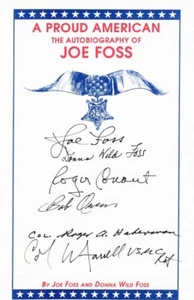 A PROUD AMERICAN
THE AUTOBIOGRAPHY OF
JOE FOSS
Joe Foss
Donna Wild Foss
Roger Conant
Bob Owens
Col. Roger A. Haberman
Col USMC Ret
BY JOE FOSS AND DONNA WILD FOSS